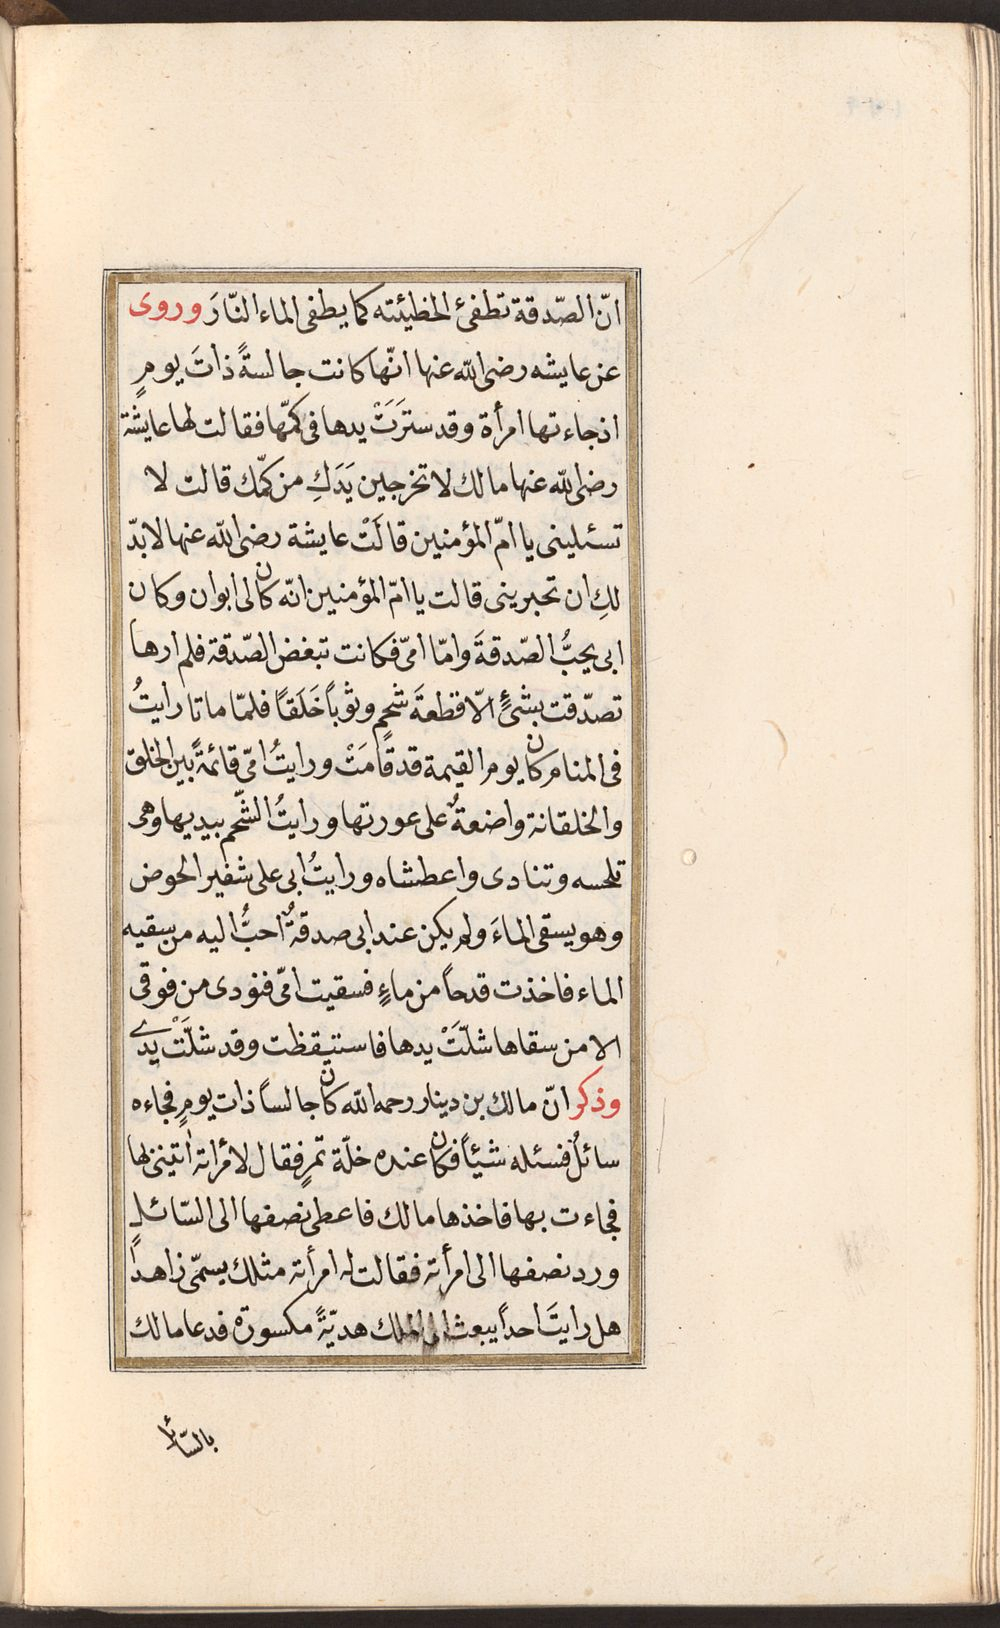 انّ الصّدقة تطفئ الخطيئته كما يطفى الماء النّارَ وروى
عن عايشه رضى الله عنها انّها كانت جالسةً ذاتَ يومٍ
اذ جاءتها امرأة وقد سترَتْ يدها فى كمّها فقالت لها عايشة
رضى الله عنها مالك لا تخرجين يَدَكِ من كمّك قالت لا
تسئلينى يا امّ المؤمنين قالَتْ عايشة رضى الله عنها لابدّ
لكِ ان تخبرينى قالت يا امّ المؤمنين انّه كان لى ابوان وكان
ابى يحبُّ الصّدقةَ وامّا امّى فكانت تبغض الصّدقة فلم ارها
تصدّقت بشئٍ الّا قطعةَ شحمٍ وثوباً خَلَقاً فلمّا ماتا رايتُ
فى المنام كان يوم القيمة قد قامَتْ ورايتُ امّى قائمةً بين الخلق
والخلقانة واضعةٌ على عورتها ورايتُ الشّحم بيديها وهى
تلحسه وتنادى واعطشاه ورايتُ ابى على شفير الحوض
وهو يسقى الماءَ ولم يكن عند ابى صدقةٌ احبُّ اليه من سقيه
الماء فاخذت قدحاً من ماءٍ فسقيت امّى فنودى من فوقى
الا من سقاها شلّتْ يدها فاستيقظت وقد شلّتْ يدى
وذكر انّ مالك بن دينار رحمه الله كان جالساً ذات يومٍ فجاءه
سائلٌ فسئله شيئاً فكان عنده خلّة تمرٍ فقال لامرأته ائتينى بها
فجاءت بها فاخذها مالك فاعطى نصفها الى السّائل
ورد نصفها الى امرأته فقالت له امرأته مثلك يسمّى زاهداً
هل رايتَ احداً يبعث الى الملك هديّةً مكسورة فدعا مالك
بالسّائل